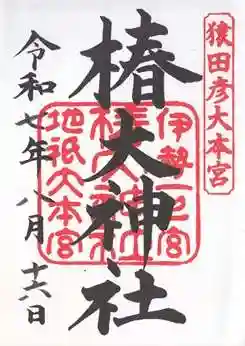 猿田彦大本宮
椿大神社
伊勢一之宮
椿大神社
地祇大本宮
令和七年八月十六日